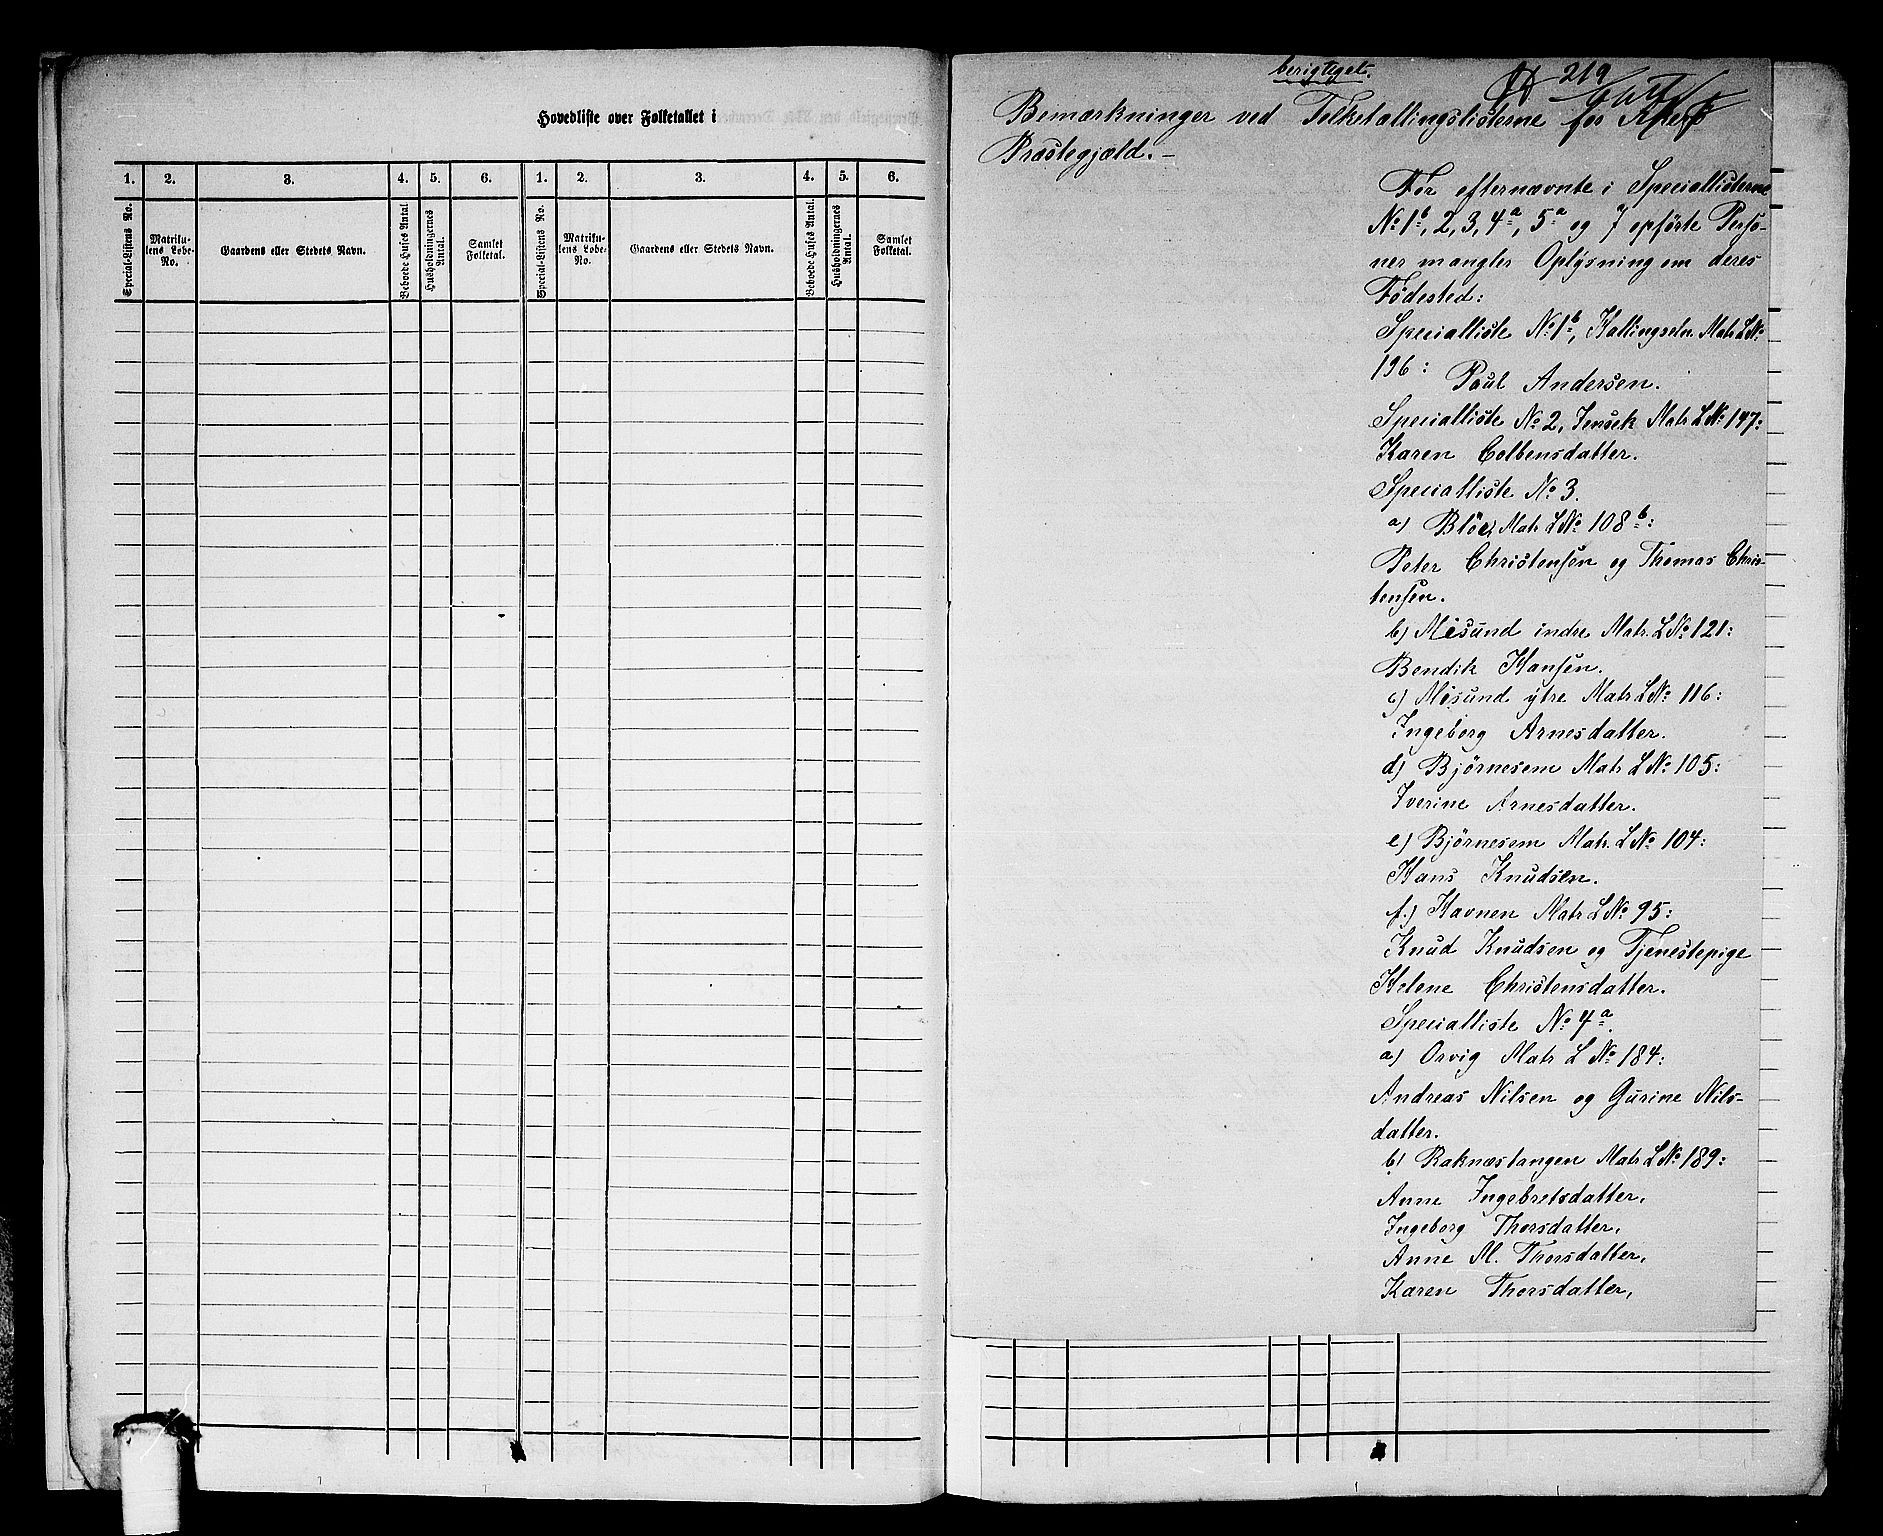 Hovedliste over Folketallet i
1. 2. 3. 4. 5. 6. 1. 2. 3. 4. 5. 6.
Special-Listens No.
Matriku-
lens Løbe-
No.
Gaardens eller Stedets Navn.
Beboede Huses Antal
Husholdningernes
Antal.
Samlet
Folketal.
Special-Listens No.
Matriku-
lens Løbe-
No.
Gaardens eller Stedets Navn.
Beboede Huses Antal.
Husholdningernes
Antal.
Samlet
Folketal.
berigtiget.
219
Bemærkninger ved Folketallingslisterne for
Præstegjæld. -
For efternævnte i Speciallisterne
No 1b, 2, 3, 4a, 5a og 7 opførte Perso-
ner mangler Oplysning om deres
Fødested:
Specialliste No 1b, Hallingseln. Matr L No
196:
Paul Andersen.
Specialliste No 2, Jensek Matr L No 147:
Karen Colbensdatter.
Specialliste No 3.
a) Matr L No 108b:
Peter Christensen og Thomas Chris-
tensen.
b) Mesund indre Matr. L No 121:
Bendik Hansen.
c) Mesund ytre Matr L No 116:
Ingeborg Arnesdatter.
d) Bjørnesem Matr L No 105:
Iverine Arnesdatter.
e) Bjørnesem Matr. L No 104:
Hans Knudsen.
f.) Havnen Matr L No 95:
Knud Knudsen og Tjenestepige
Helene Christensdatter.
Specialliste No 4a.
a) Orvig Matr L No 184:
Andreas Nilsen og Gurine Nils-
datter.
b) Raknæstangen Matr L No 189:
Anne Ingebretsdatter,
Ingeborg Thorsdatter,
Anne M. Thorsdatter,
Karen Thorsdatter,